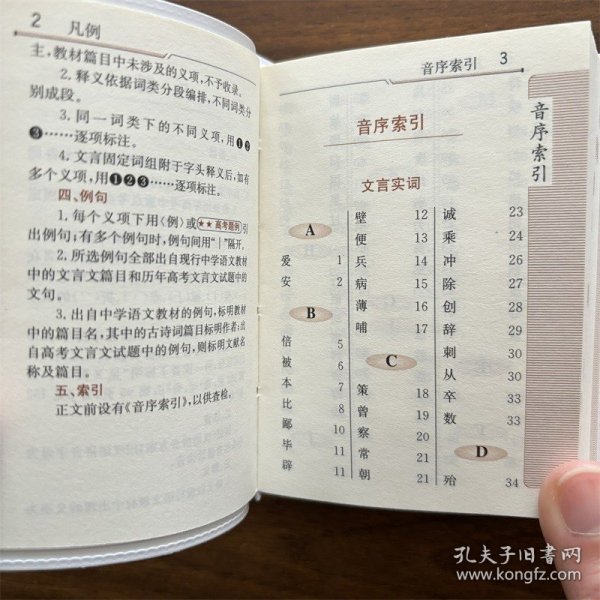 2 凡例
主,教材篇目中未涉及的义项,不予收录。
2. 释义依据词类分段编排,不同词类分
别成段。
3. 同一词类下的不同义项,用❶❷
❸……逐项标注。
4. 文言固定词组附于字头释义后,如有
多个义项,用❶❷❸……逐项标注。
四、例句
1. 每个义项下用〈例〉或★★高考题例引
出例句;有多个例句时,例句间用“｜”隔开。
2. 所选例句全部出自现行中学语文教材
中的文言文篇目和历年高考文言文试题中的
文句。
3. 出自中学语文教材的例句,标明教材
中的篇目名,其中的古诗词篇目标明作者;出
自高考文言文试题中的例句,则标明文献名
称及篇目。
五、索引
正文前设有《音序索引》,以供查检。
音序索引 3
音序索引
文言实词
A
爱 1
安 2
B
倍 5
被 6
本 7
比 8
鄙 10
毕 11
辟 11
壁 12
便 13
兵 14
病 15
薄 16
哺 17
C
策 18
曾 19
察 20
常 21
朝 21
诚 23
乘 24
冲 26
除 27
创 28
辞 29
刺 30
从 31
卒 33
数 33
D
殆 34
音序索引
孔夫子旧书网
www.kongfz.com